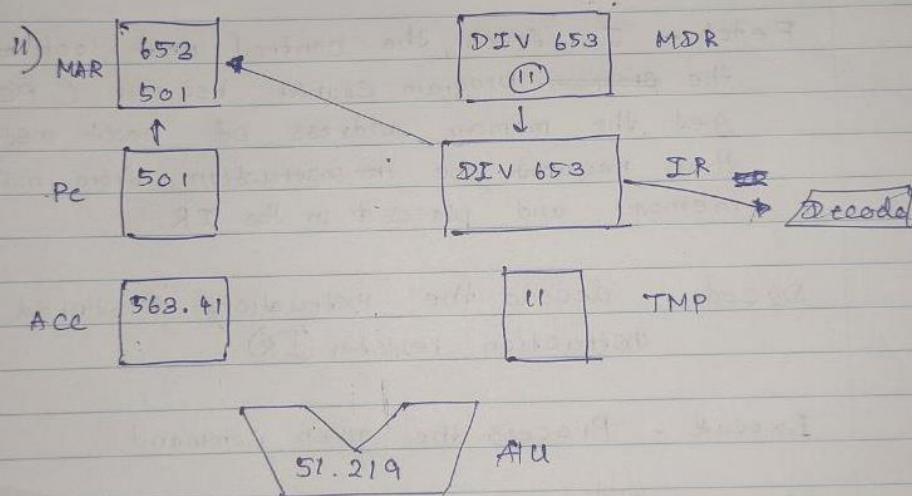 11)
MAR
653
501
DIV 653
11
MDR
PC
501
DIV 653
IR
Decode
ACC
563.41
11
TMP
51.219
ALU